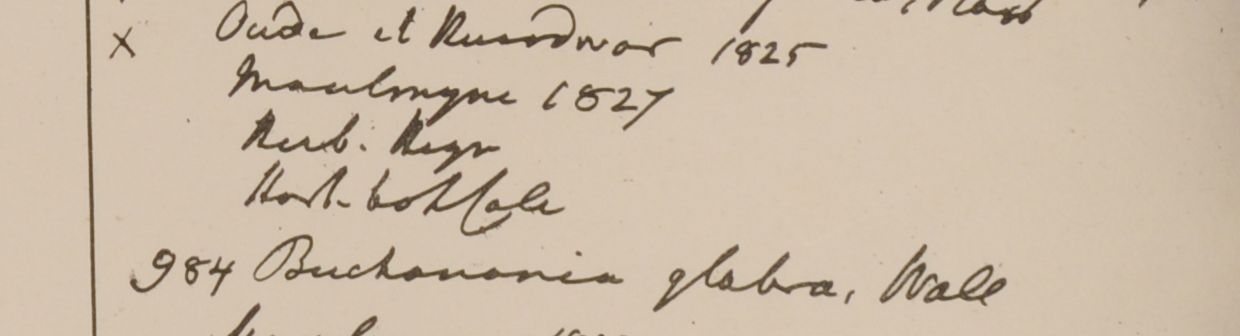 x Oude et Kurodwar 1825
Moulmyne 1827
Herb. Heyn
Hort. bot Calc
984 Buchanania glabra, Wall